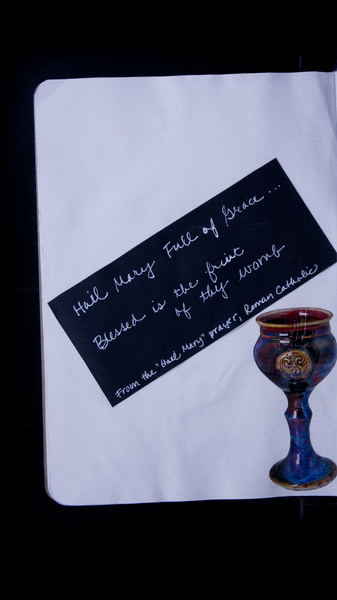 Hail Mary Full of Grace...
Blessed is the fruit
of thy womb
From the "Hail Mary" prayer, Roman Catholic